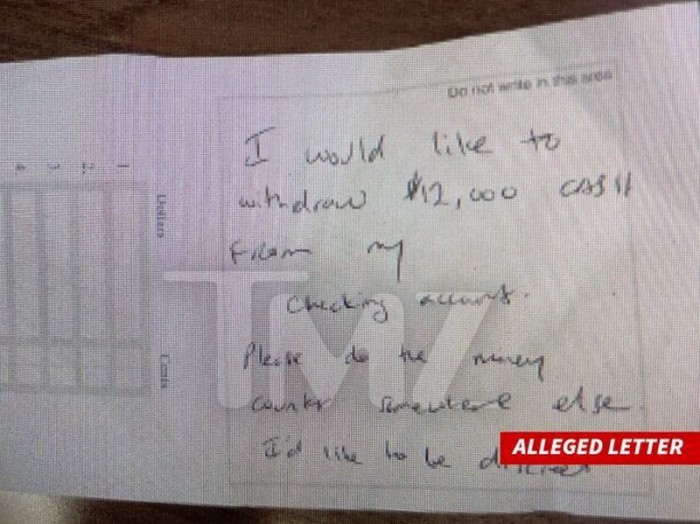 Do not write in this area
I would like to
withdraw $12,000 CASH
From my
Checking account.
Please do the money
counter somewhere else.
I'd like to be
ALLEGED LETTER
Dollars
Cents
TMZ